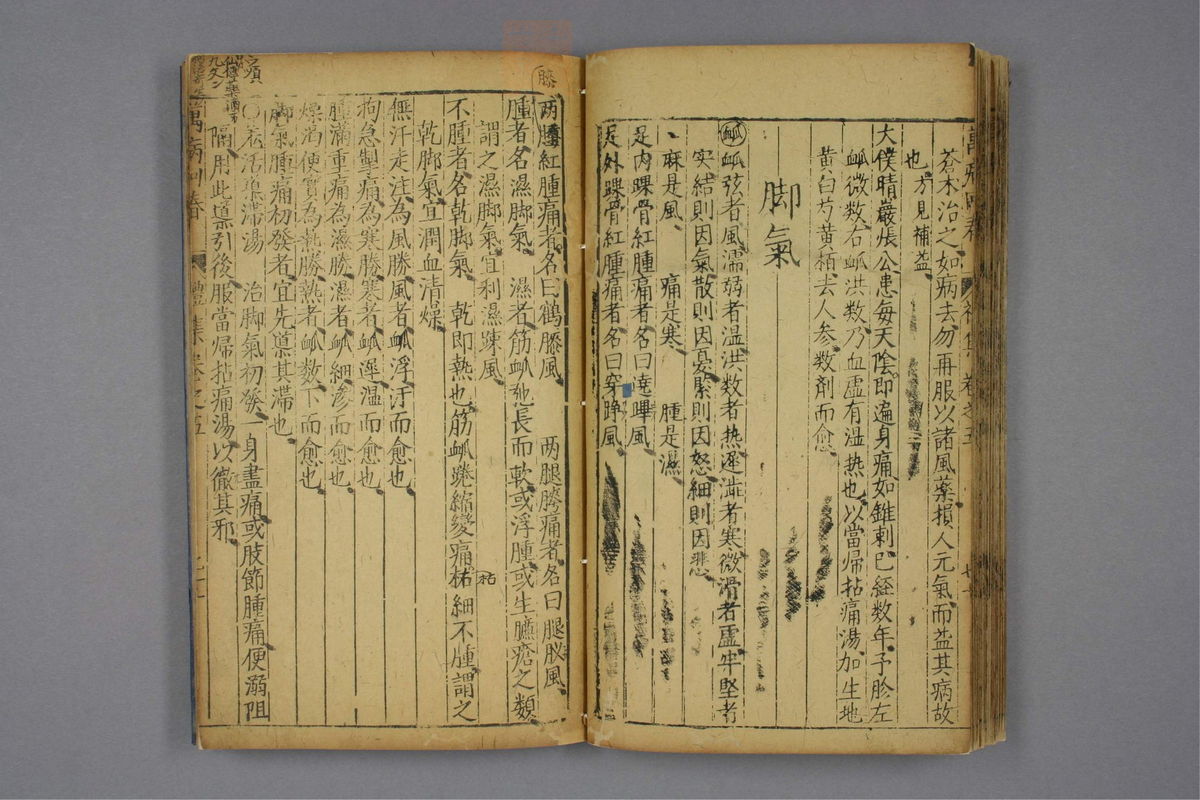 蒼朮治之如病去勿再服以諸風藥損人元氣而益其病故
也方見補益
大僕晴巖張公患每天陰即遍身痛如錐刺已経数年予胗左
䘑微数右䘑洪数乃血虚有湿热也以當帰拈痛湯加生地
黄白芍黄栢去人参数剤而愈
脚氣
䘑 䘑弦者風濡弱者湿洪数者热遅澁者寒微滑者虚牢堅者
实結則因氣散則因憂緊則因怒細則因悲
麻是風 痛是寒 腫是濕
足内踝骨紅腫痛者名曰遶踭風
足外踝骨紅腫痛者名曰穿踭風
膝
两膝紅腫痛者名曰鶴膝風 两腿胯痛者名曰腿股風
腫者名濕脚氣 濕者筋䘑弛長而軟或浮腫或生臁瘡之類
謂之濕脚氣宜利濕踈風
不腫者名乾脚氣 乾即熱也筋䘑踡縮攣痛枯細不腫謂之
枯
乾脚氣宜潤血清燥
無汗走注為風勝風者䘑浮汗而愈也
拘急掣痛為寒勝寒者䘑遲温而愈也
腫滿重痛為濕勝濕者䘑細滲而愈也
燥渴便實為熱勝熱者䘑数下而愈也
脚氣腫痛初發者宜先導其滞也
○羗活導滞湯 治脚氣初發一身盡痛或肢節腫痛便溺阻
隔用此導引後服當帰拈痛湯以徹其邪
萬病回春 禮集卷之五